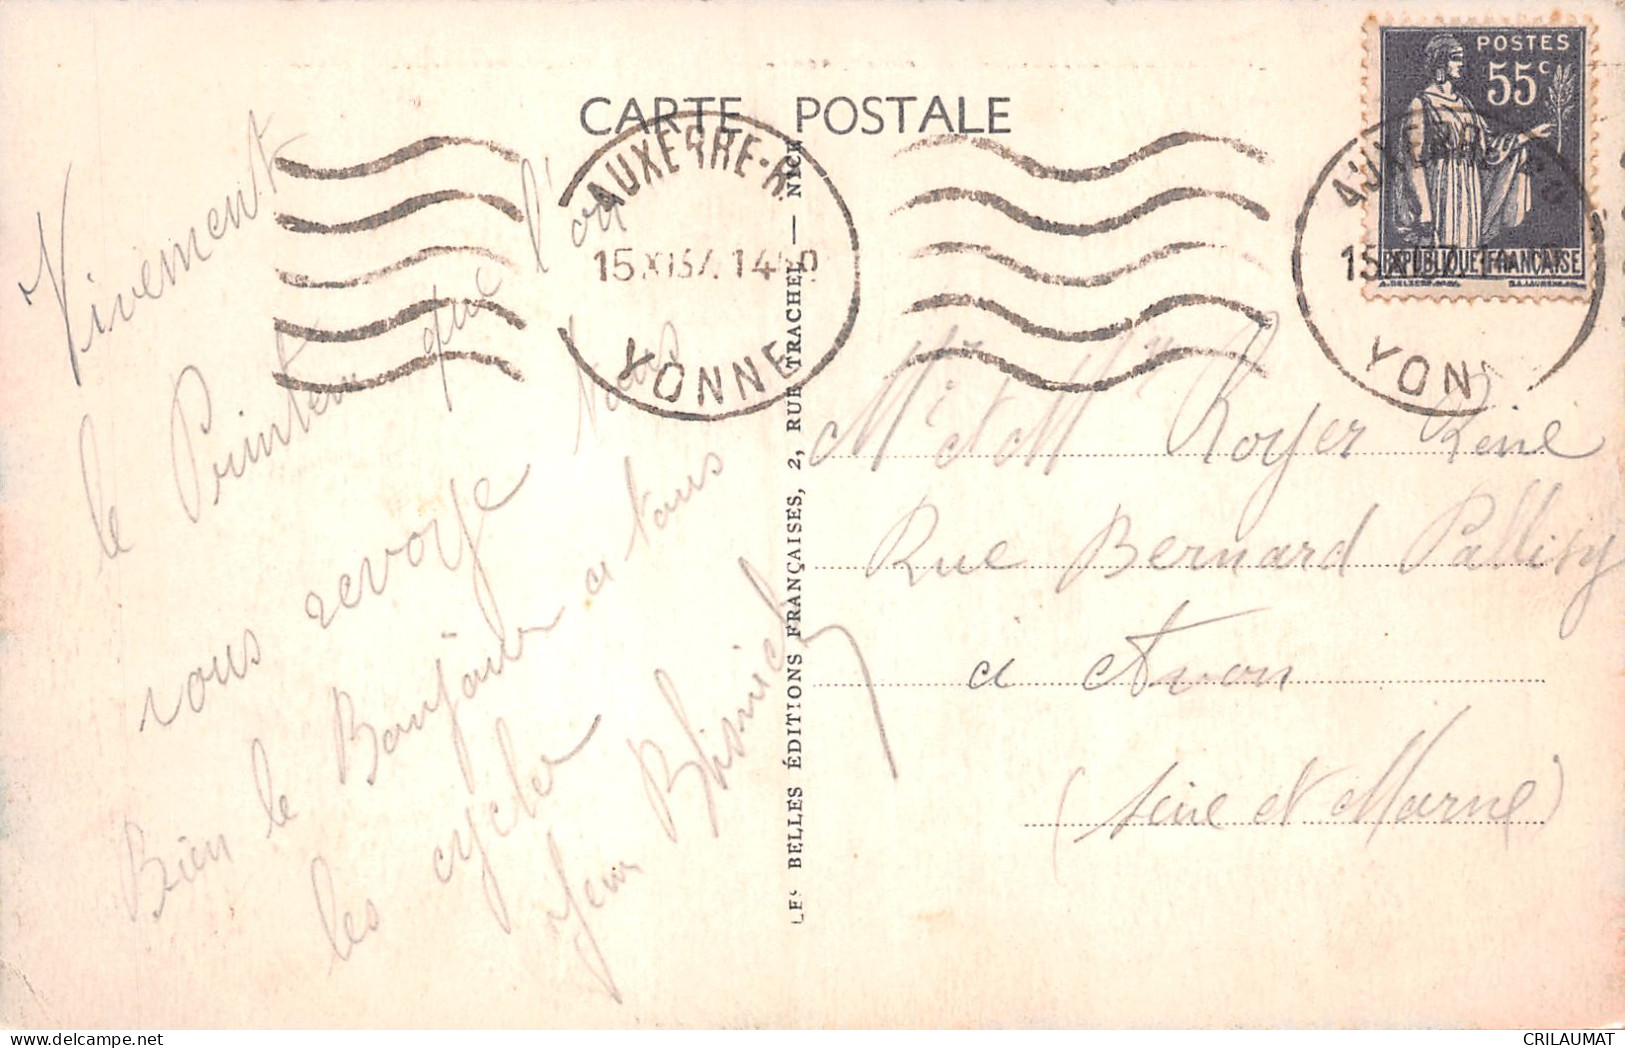 CARTE POSTALE
POSTES
55c
REPUBLIQUE FRANÇAISE
AUXERRE-R.
15 XI 37 14
YONNE
AUXERRE
15
YON
LES BELLES ÉDITIONS FRANÇAISES, 2, RUE TRACHEL — NICE
Vivement
le Printemps que l'on
vous revoye tous
Bien le Bonjour a tous
les cyclos
Mr et Mme Royer René
Rue Bernard Pallisy
a Avon
(Seine et Marne)
CRILAUMAT